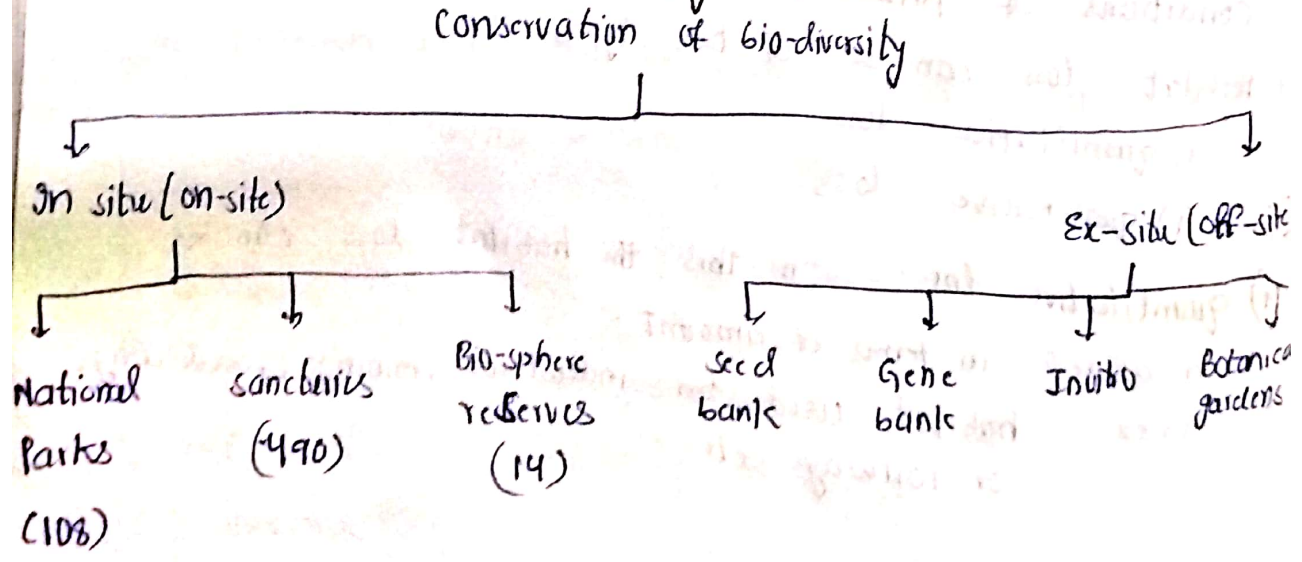 Conservation of bio-diversity
In situ (on-site)
Ex-situ (off-site
National
Parks
(108)
sancturies
(490)
Bio-sphere
reserves
(14)
seed
bank
Gene
bank
Invitro
Botanica
gardens